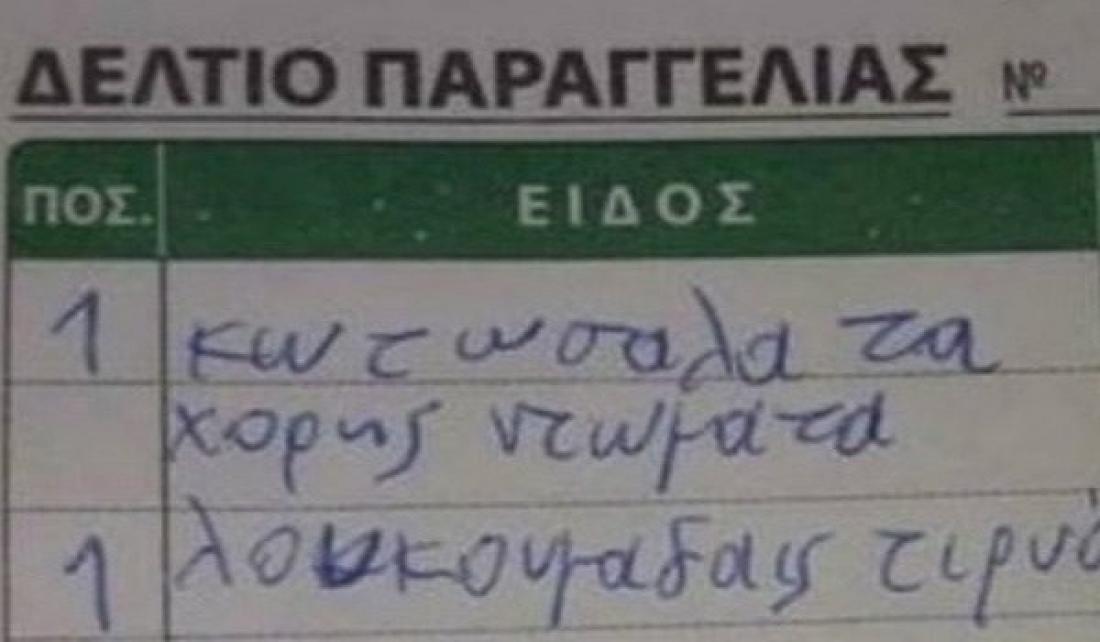 ΔΕΛΤΙΟ ΠΑΡΑΓΓΕΛΙΑΣ Νº
ΠΟΣ. ΕΙΔΟΣ
1 κωτωσαλα τα
χορης ντωματα
1 λουκουμαδαις